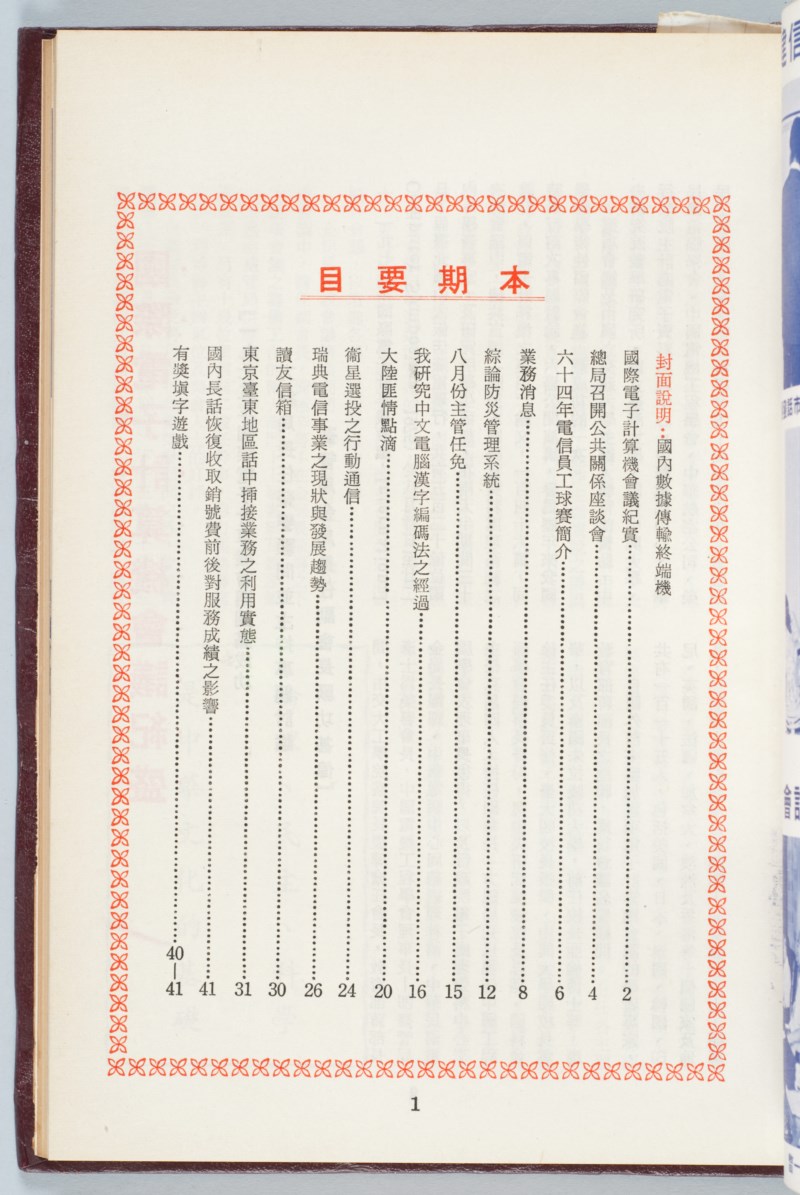 本期要目
封面說明：國內數據傳輸終端機
國際電子計算機會議紀實……2
總局召開公共關係座談會……4
六十四年電信員工球賽簡介……6
業務消息……8
綜論防災管理系統……12
八月份主管任免……15
我研究中文電腦漢字編碼法之經過……16
大陸匪情點滴……20
衞星選投之行動通信……24
瑞典電信事業之現狀與發展趨勢……26
讀友信箱……30
東京臺東地區話中揷接業務之利用實態……31
國內長話恢復收取銷號費前後對服務成績之影響……41
有獎塡字遊戲……40—41
1